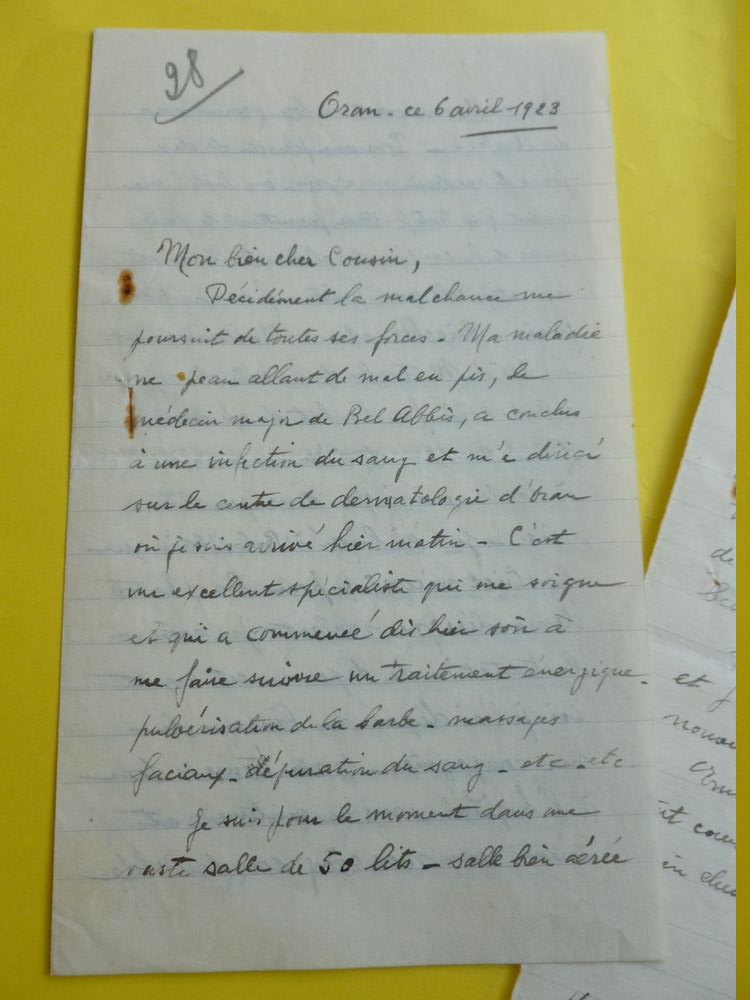 98
Oran - ce 6 avril 1923
Mon bien cher Cousin,
Décidément la malchance me
poursuit de toutes ses forces - Ma maladie
ne peau allant de mal en pis, le
médecin major de Bel Abbès, a conclus
à une infection du sang et m'a dirigé
sur le centre de dermatologie d'Oran
où je suis arrivé hier matin - C'est
un excellent spécialiste qui me soigne
et qui a commencé dès hier soir à
me faire suivre un traitement énergique -
pulvérisation de la barbe - massages
faciaux - dépuration du sang - etc - etc -
Je suis pour le moment dans une
vaste salle de 50 lits - salle bien aérée
de
et
nouve
it
en